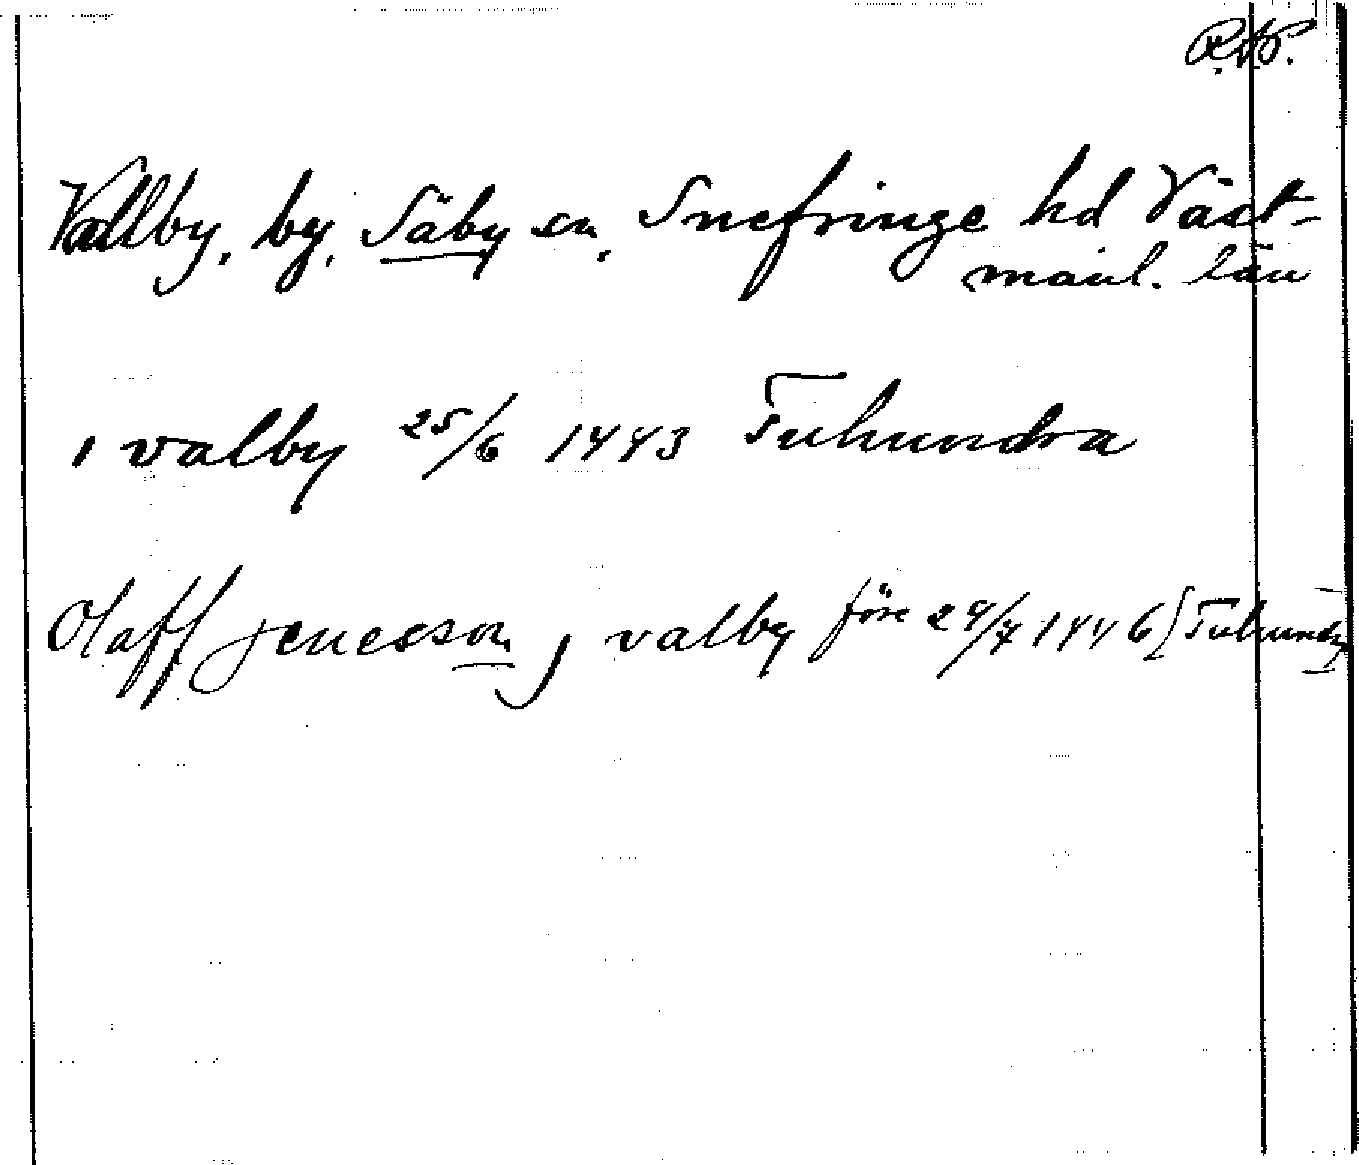 Vallby, by, Säby sn, Snefringe hd Väst-
manl. län
i valby 25/6 1443 Tuhundra
Olaff jenesson j valby före 24/7 1446 [Tuhundr]